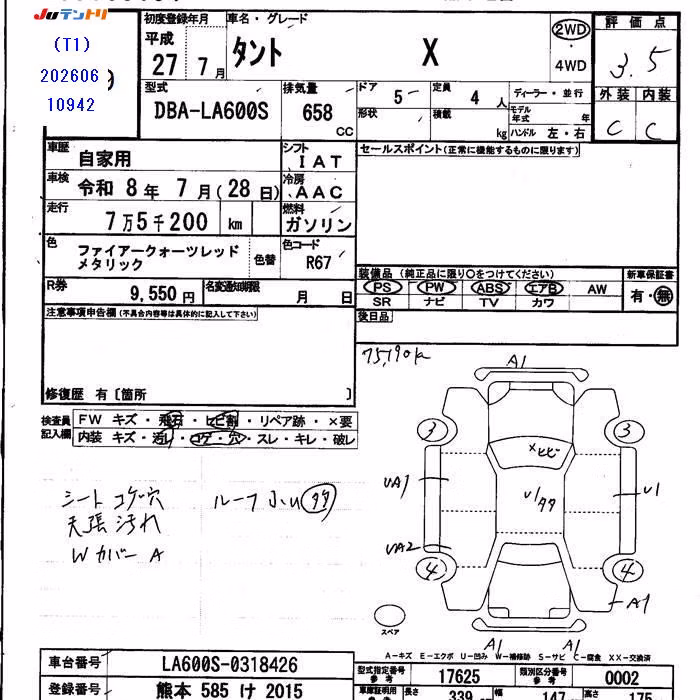 Juテントリ
(T1)
202606
10942
初度登録年月 車名・グレード
平成 27年 7月 タント X 2WD・4WD
評価点 3.5
外装 内装
C C
型式 DBA-LA600S 排気量 658 CC
ドア 5 定員 4人 ディーラー・並行
形状 積載 kg モデル年式 年
ハンドル 左・右
車歴 自家用 シフト IAT
車検 令和 8年 7月(28日) 冷房 AAC
走行 7万5千200 km 燃料 ガソリン
色 ファイアークォーツレッドメタリック 色替 色コード R67
R券 9,550円 名変通知期限 月 日
セールスポイント(正常に機能するものに限ります)
装備品 (純正品に限り○をつけてください) 新車保証書
PS PW ABS エアB AW 有・無
SR ナビ TV カワ
後日品
注意事項申告欄(不具合内容等は具体的に記入して下さい)
修復歴 有〔箇所 〕
検査員記入欄
FW キズ・飛石・ヒビ割・リペア跡・×要
内装 キズ・汚レ・コゲ・穴・スレ・キレ・破レ
シート コゲ穴 ルーフ 小U
天張 汚れ
W カバー A
75,190k
A1
3 3
×ヒビ
UA1 U1 U1
UA2
4 4
A1
A1 A1
スペア
A-キズ E-エクボ U-凹み W-補修跡 S-サビ C-腐食 XX-交換済
車台番号 LA600S-0318426
登録番号 熊本 585 け 2015
型式指定番号 参考 17625 類別区分番号 参考 0002
車検証明用 長さ 339 幅 147 高さ 175